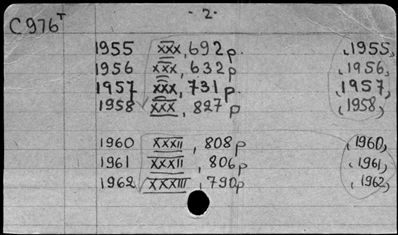 C976T - 2-
1955 XXX, 692p. (,1955,
1956 XXX, 632p. (,1956,
1957 XXX, 731p. (,1957,
1958 XXX, 827p (,1958,)
1960 XXXII, 808p (,1960,)
1961 XXXII, 806p (,1961,)
1962 XXXIII, 790p (,1962,)